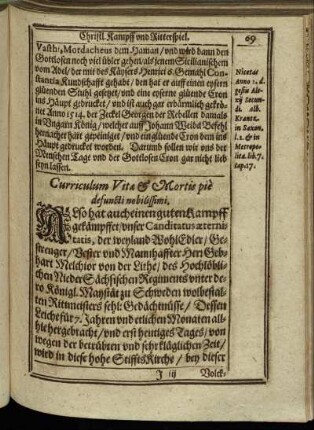 Christl. Kampff vnd Ritterspiel.
69
Vasthi, Mordacheus dem Haman / vnd wird dann den
Gottlosen noch viel übler gehen / als jenem Sicilianischen
vom Adel / der mit des Käysers Henrici 6. Gemahl Con-
stantia Kundschafft gehabt / den hat er auff einen eysern
glüenden Stuhl gesetzet / vnd eine eyserne glüende Cron
ins Häupt gedrucket / vnd ist auch gar erbärmlich gekrö-
net Anno 1514. der Zeckel Georgen der Rebellen damals
in Ungarn König / welchet auff Johann Weida Befehl
hernacher hart gepeiniget / vnd ein glüende Cron den ins
Häupt gedrucket worden. Darumb sollen wir uns der
Menschen Tage vnd der Gottlosen Cron gar nicht lieb
seyn lassen.
Nicetas
anno 1. d.
gestis Ale-
xij Secun-
di. alb.
Krantz.
in Saxon.
l. 1. & in
Metropo-
lita. lib. 7.
cap. 17.
Curriculum Vitæ & Mortis piè
defuncti nobilissimi.
ALso hat auch einen guten Kampff
gekämpffet / vnser Canditatus æternis
itatis, der weyland WohlEdler / Ge-
strenger / Vester vnd Mannhaffter Herr Geb-
hart Melchior von der Lithe / des Hochlöbli-
chen NiederSächsischen Regiments vnter de-
ro Königl. Maystät zu Schweden wolbestal-
ten Rittmeisters sehl: Gedächtnüsse / Dessen
Leiche für 7. Jahren vnd etlichen Monaten all-
hie hergebracht / vnd erst heutiges Tages / von
wegen der betrübten vnd sehr kläglichen Zeit /
wird in diese hohe StiffsKirche / bey dieser
J iij
Volck-